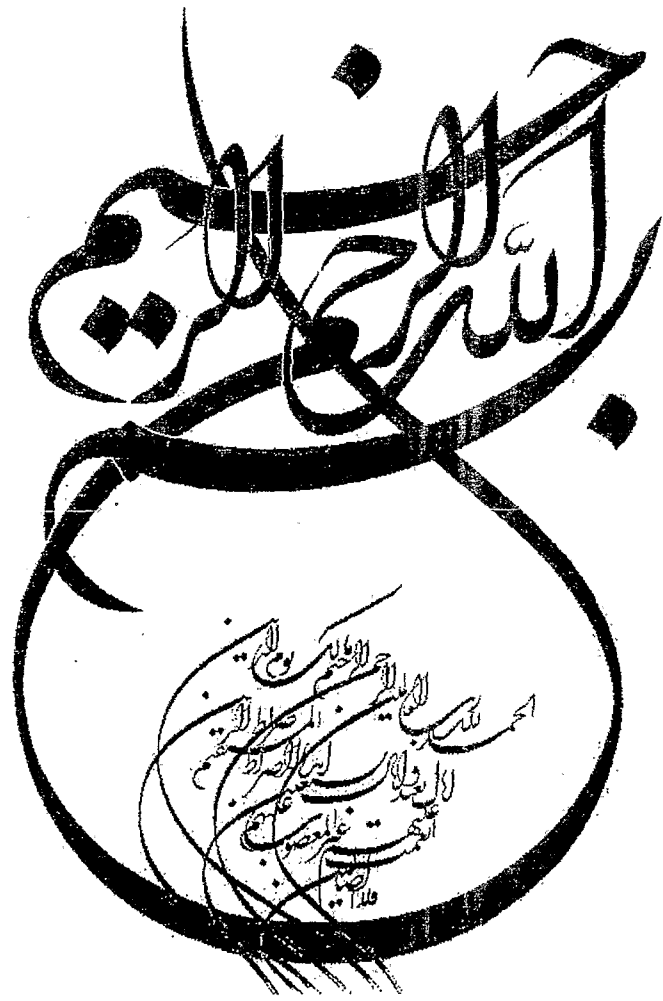 بسم الله الرحمن الرحيم
الحمد لله رب العالمين
الرحمن الرحيم مالك يوم الدين
اياك نعبد و اياك نستعين
اهدنا الصراط المستقيم
صراط الذين
انعمت عليهم
غير المغضوب عليهم
ولا الضالين